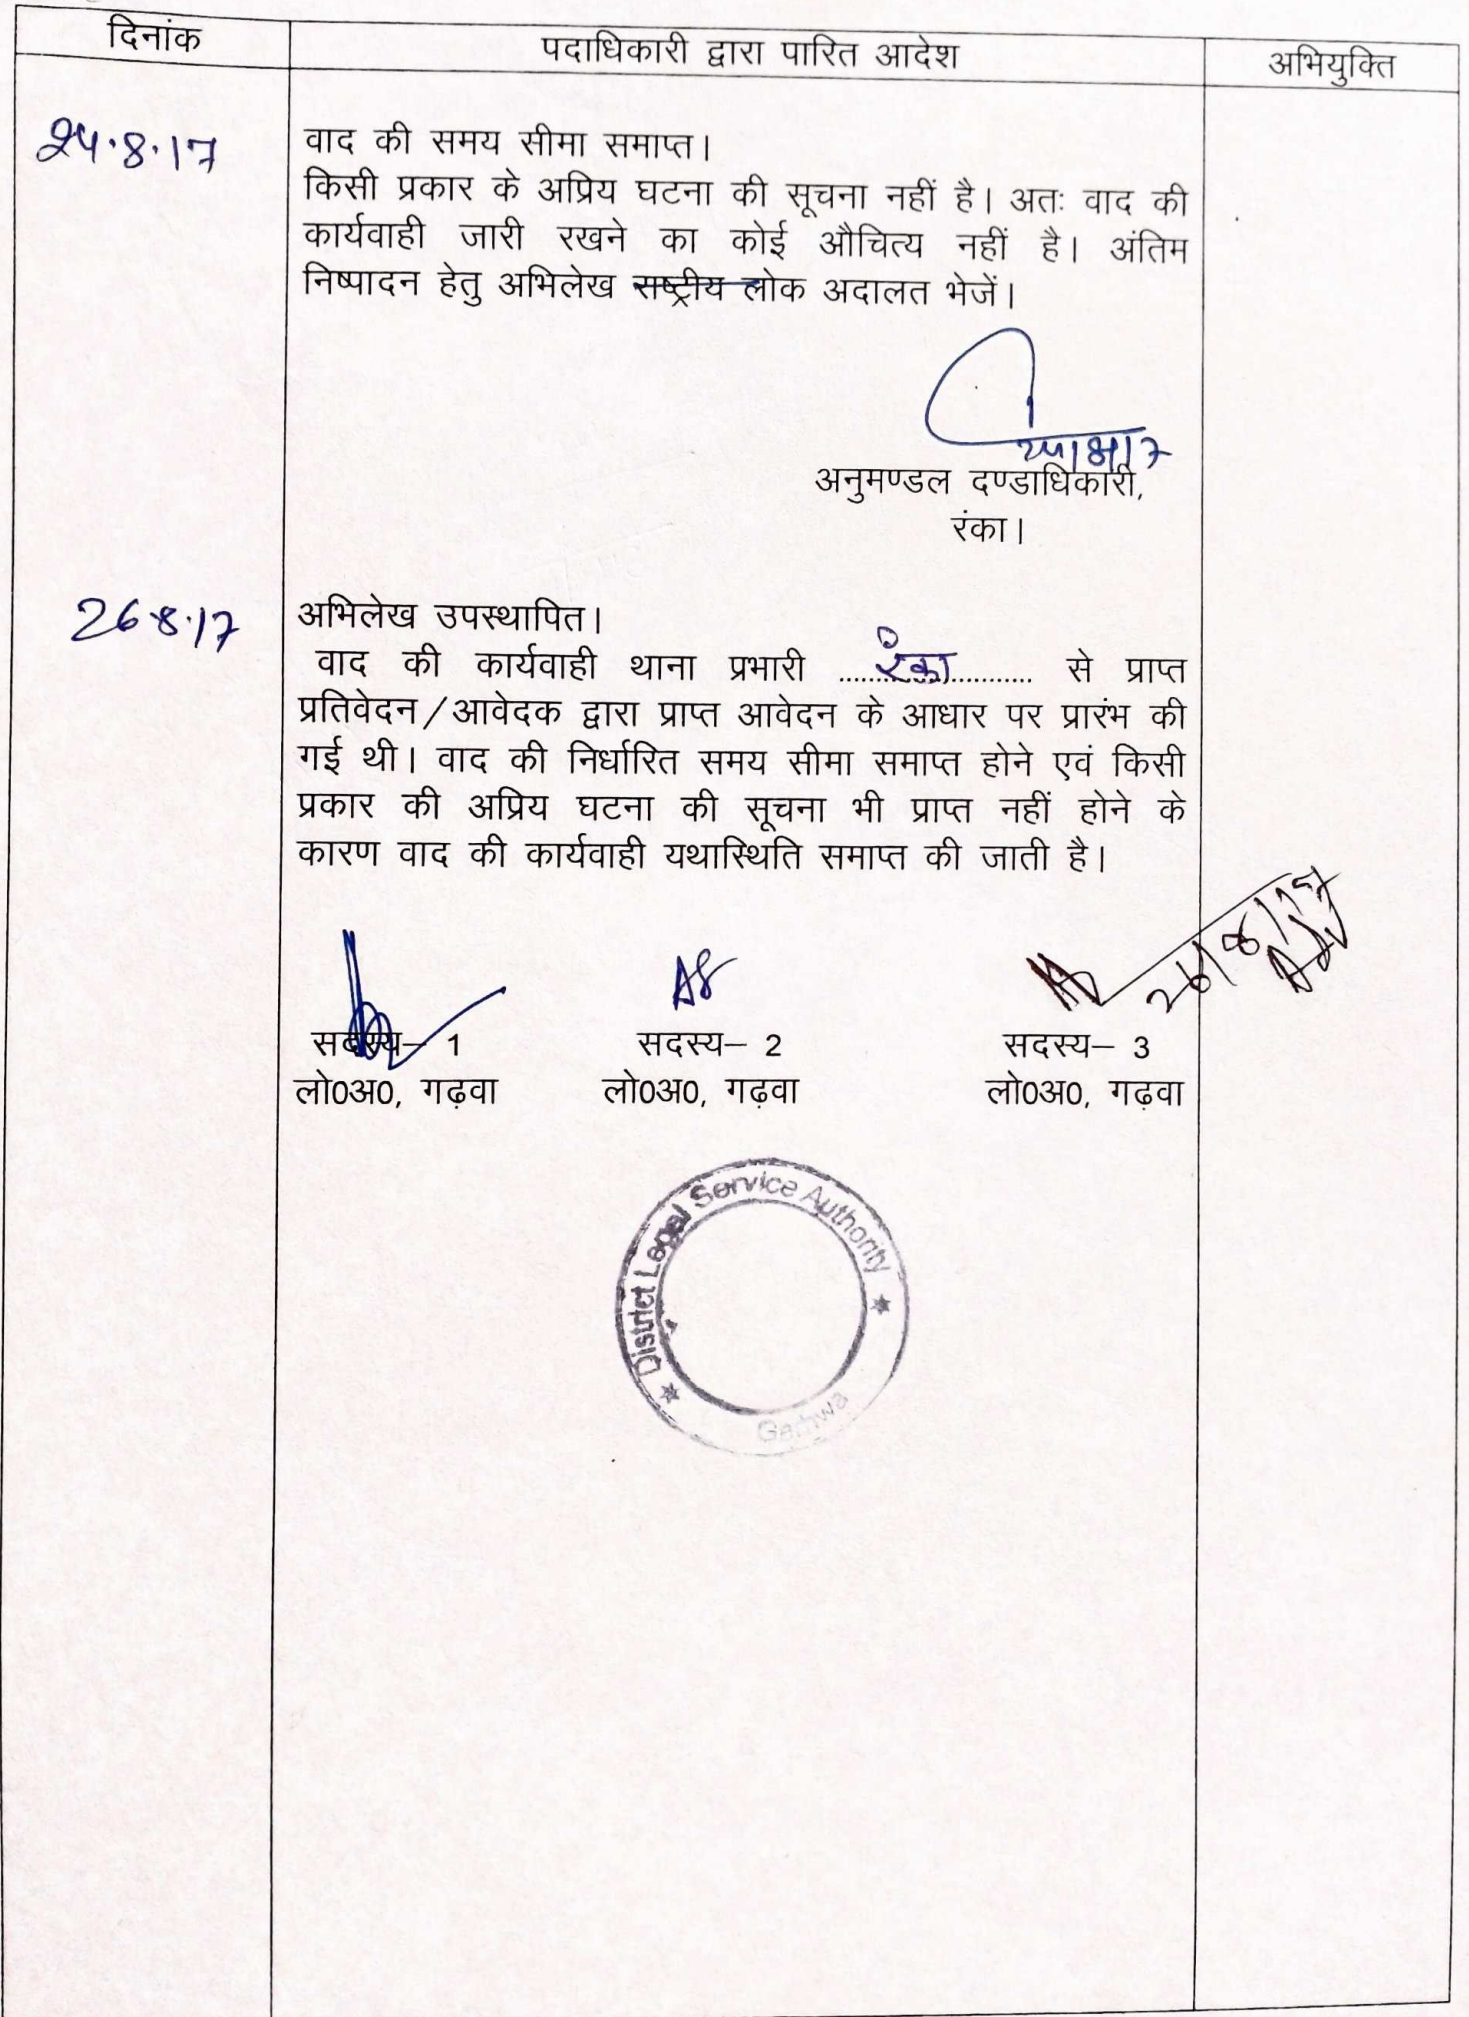 दिनांक
पदाधिकारी द्वारा पारित आदेश
अभियुक्ति
24.8.17
वाद की समय सीमा समाप्त।
किसी प्रकार के अप्रिय घटना की सूचना नहीं है। अतः वाद की
कार्यवाही जारी रखने का कोई औचित्य नहीं है। अंतिम
निष्पादन हेतु अभिलेख राष्ट्रीय लोक अदालत भेजें।
अनुमण्डल दण्डाधिकारी,
रंका।
26.8.17
अभिलेख उपस्थापित।
वाद की कार्यवाही थाना प्रभारी रंका से प्राप्त
प्रतिवेदन/आवेदक द्वारा प्राप्त आवेदन के आधार पर प्रारंभ की
गई थी। वाद की निर्धारित समय सीमा समाप्त होने एवं किसी
प्रकार की अप्रिय घटना की सूचना भी प्राप्त नहीं होने के
कारण वाद की कार्यवाही यथास्थिति समाप्त की जाती है।
26/8/17
सदस्य– 1 सदस्य– 2 सदस्य– 3
लो0अ0, गढ़वा लो0अ0, गढ़वा लो0अ0, गढ़वा
District Legal Service Authority
Garhwa